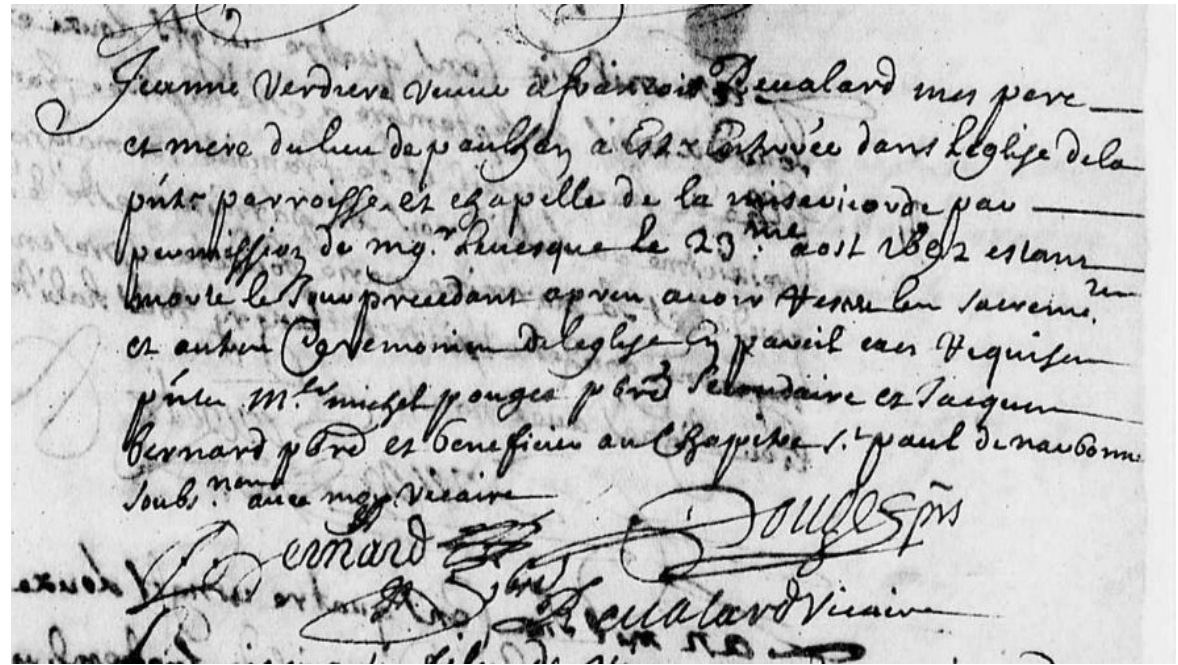 Jeanne Verdiere veuve a francois Reualard mes pere
et mere du lieu de paulhan a Este Entervée dans Leglise de la
pnte parroisse et chapelle de la misericorde par
permission de mgr Leuesque le 23me aost 1692 estant
morte le Jour precedant apres auoir Receu les sacremens
et autres Ceremonies de leglise En pareil cas Requises
pntes Mre michel pouges pbre secondaire et Jacques
bernard pbre et beneficier au Chapitre St paul de narbonne
soubsnes auec moy vicaire
Pouges pbs
Bernard
pbre
Reualard Vicaire